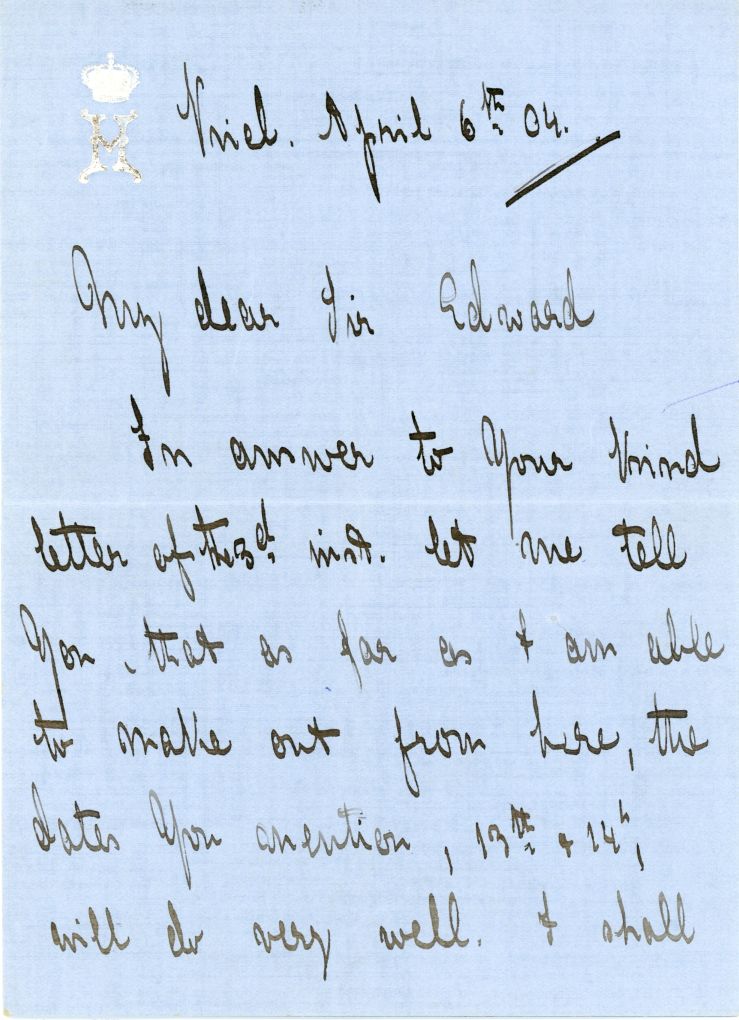 H
Kiel. April 6th 04.
My dear Sir Edward
In answer to Your kind
letter of the 3d. inst. let me tell
You, that as far as I am able
to make out from here, the
dates You mention, 13th & 14h,
will do very well. I shall